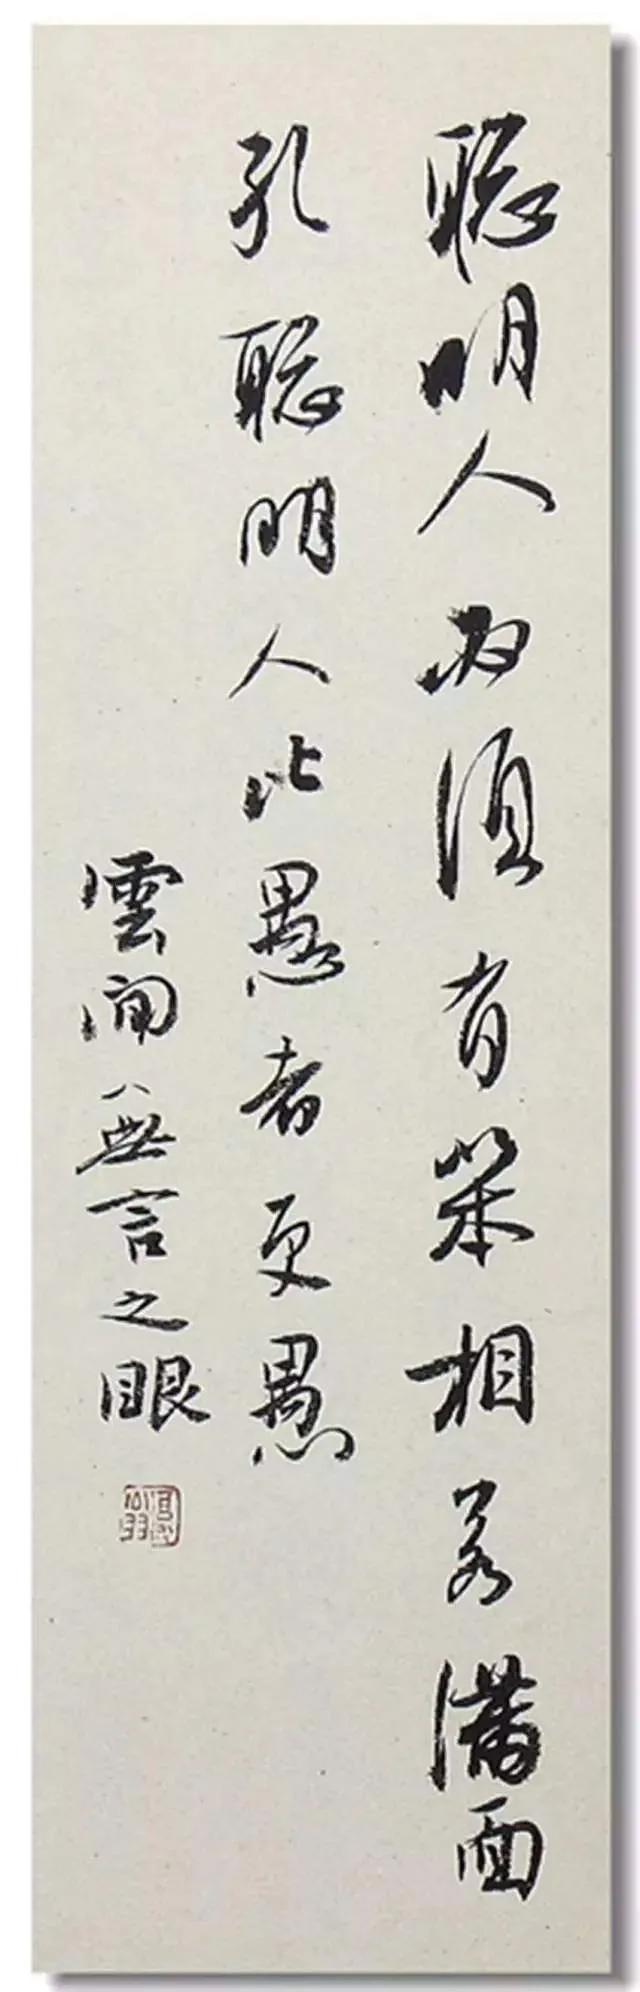 聰明人須有笨相若滿面
孔聰明人比愚者更愚
雲間無言之眼